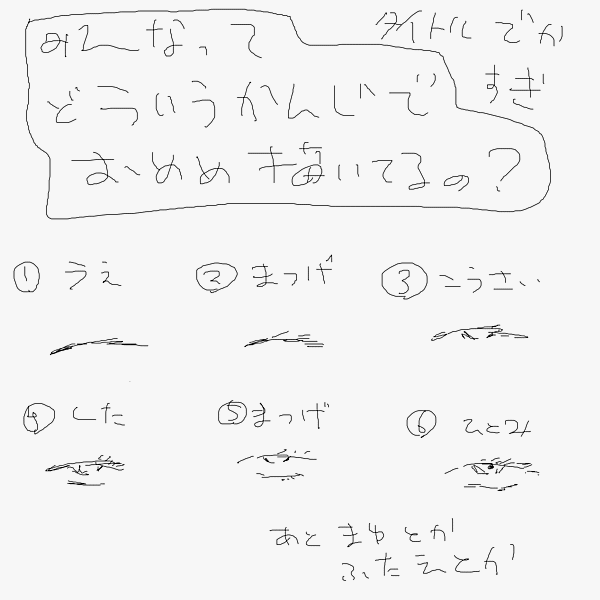 みんなって
どういうかんじで
おめめ描いてるの?
タイトルでか
すぎ
① うえ
② まつげ
③ こうさい
④ した
⑤ まつげ
⑥ ひとみ
あと まゆとか
ふたえとか